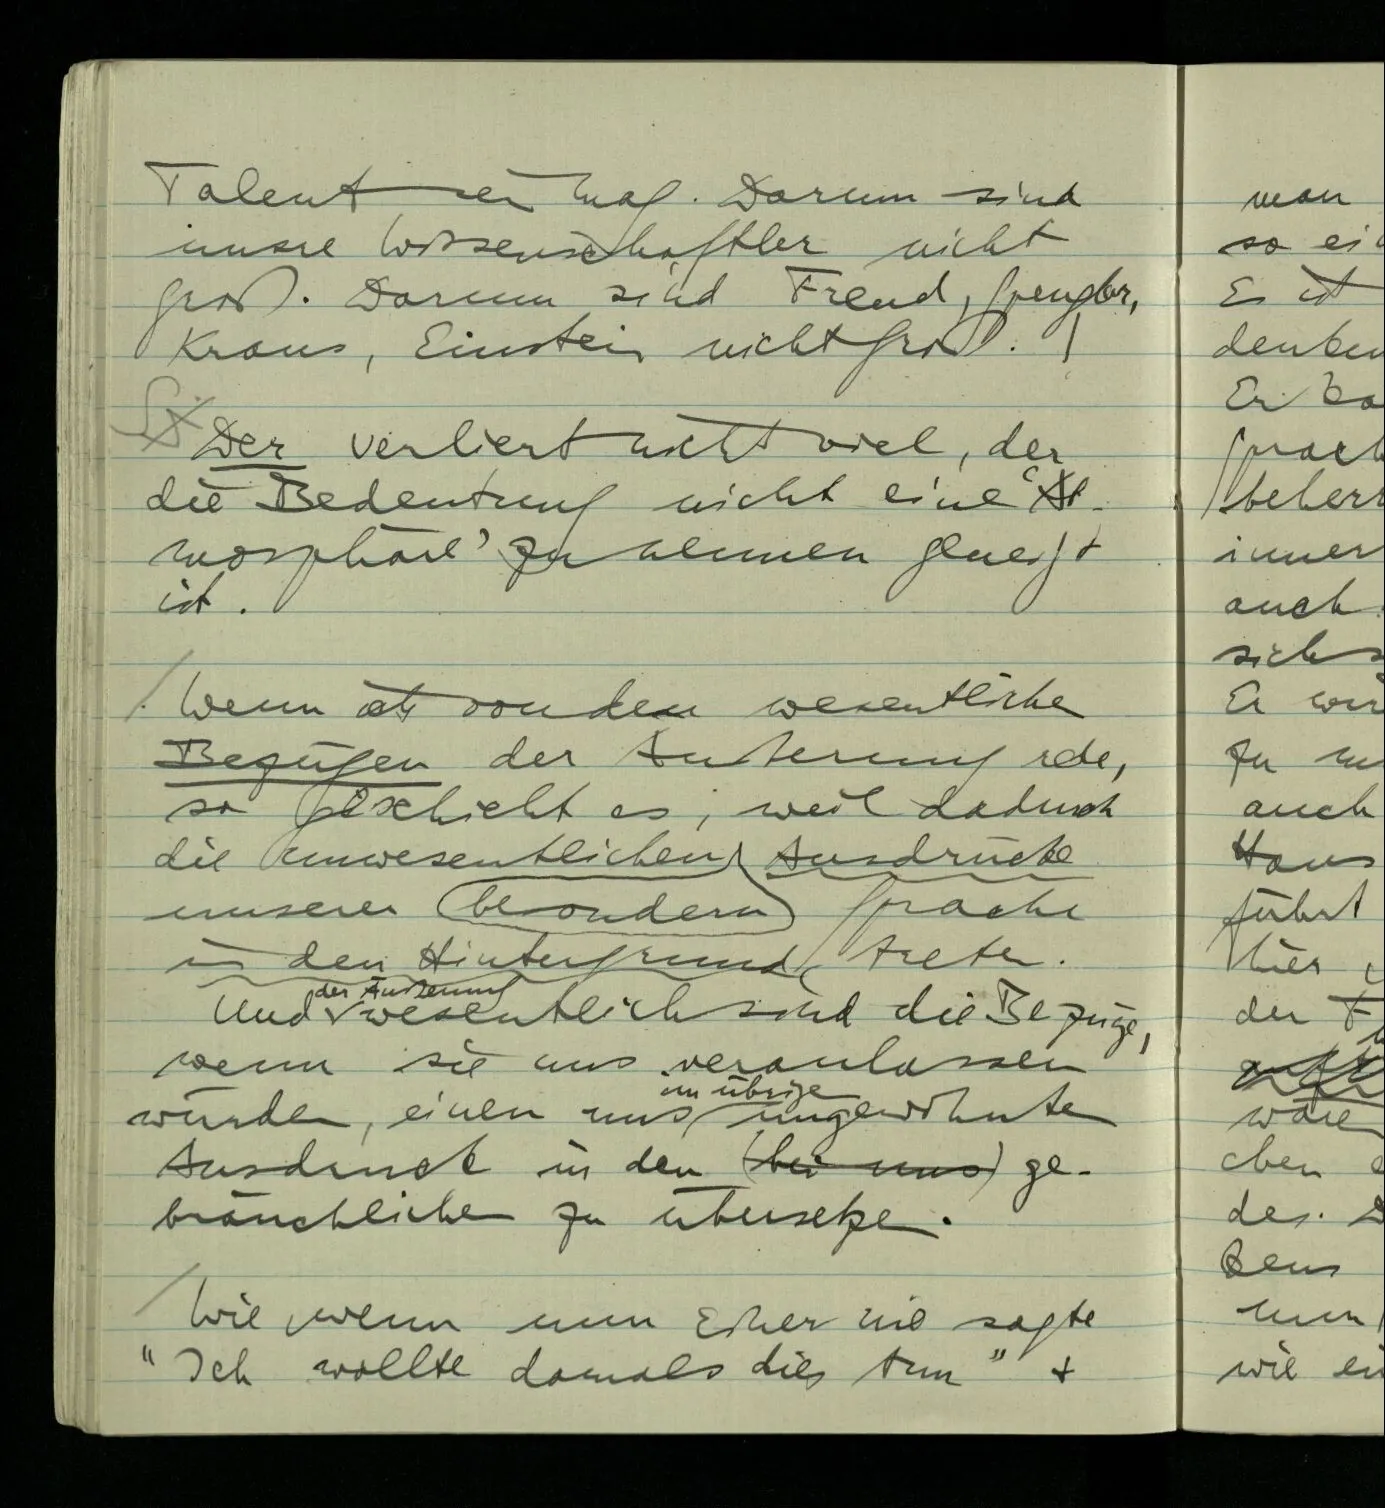 Talent sein mag. Darum sind
unsre Wissenschaftler nicht
groß. Darum sind Freud, Spengler,
Kraus, Einstein nicht groß. |
Der verliert nicht viel, der
die Bedeutung nicht eine ‘At-
mosphäre’ zu nennen geneigt
ist.
/ Wenn ich von den wesentlichen
Bezügen der Äußerung rede,
so geschieht es, weil dadurch
die unwesentlichen Ausdrücke
unserer (besondern) Sprache
in den Hintergrund treten.
der Äußerung
Und wesentlich sind die Bezüge,
wenn sie uns veranlassen
im übrigen
würden, einen uns ungewohnten
Ausdruck in den (bei uns) ge-
bräuchlichen zu übersetzen.
/ Wie wenn nun Einer nie sagte
“Ich wollte damals dies tun” +
man
so
Es ist
denken
Er
sprach
/
immer
auch

Er
zu
auch
Haus
führt
hier
der

wäre
chen
des.

nun
wie